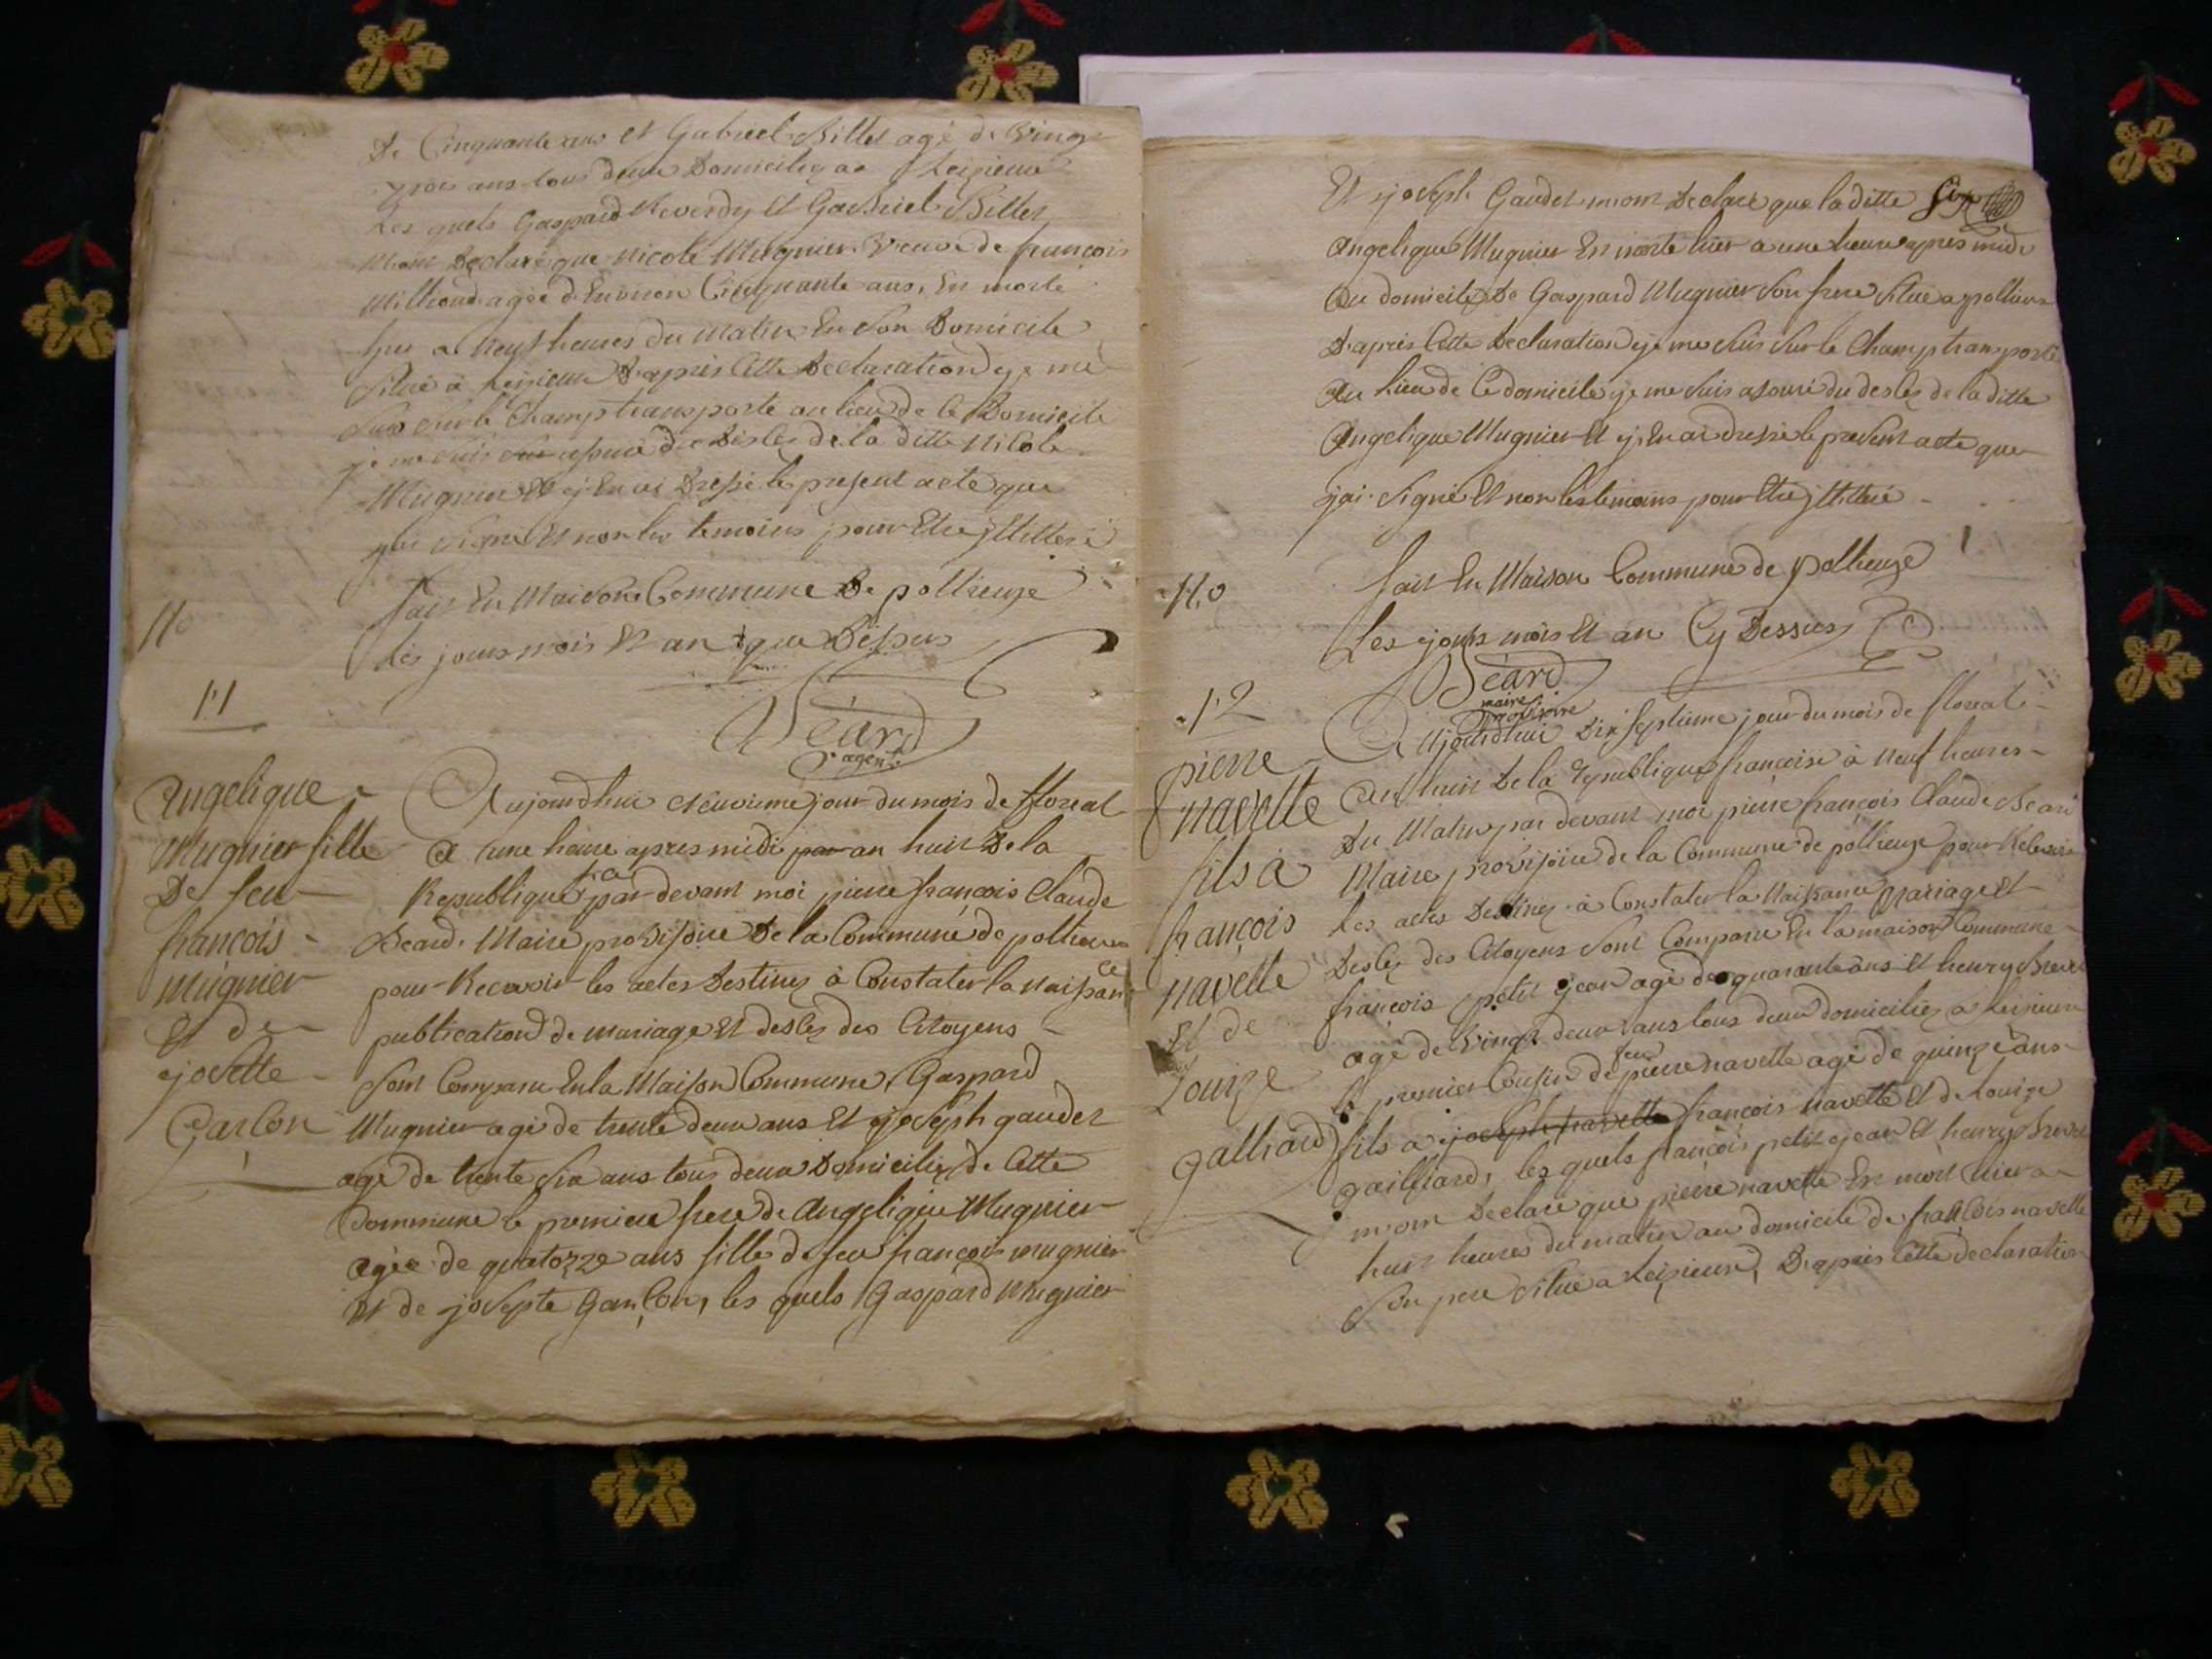 De Cinquante ans et Gabriel Billet agé de Vingt
trois ans tous deux Domiciliez a Leizieux
Les quels Gaspard Reverdy et Gabriel Billet
m'ont Declaré que Nicole Mugnier Veuve de françois
Milliond agée d'Environ Cinquante ans, En morte
hier a neuf heures du Matin En son Domicile
situé à Leizieux D'après Cette Declaration je me
suis sur le Champ transporté au lieu de Ce Domicile
je me suis assuré du Désces de la ditte Nicole
Mugnier Et j'En ai Dressé le present acte que
j'ai Signé Et non les temoins pour Etre jllitteré
fait En Maison Commune De polliense
No
les jours mois Et an que Dessus
11
Béard
agent
Angelique
Mugnier fille
De feu
françois
Mugnier
Et de
josette
Garlon
Aujourd'huy Neuvieme jour du mois de floreal
a une heure apres midi par an huit De la
Republique fra par devant moi pierre françois Claude
Beard Maire provisoire De la Commune de pollieux
pour Recevoir les actes Destinez à Constater la Naissance
publication de mariage Et desces des Citoyens
Sont Comparu En la Maison Commune, Gaspard
Mugnier agé de trente deux ans Et joseph gaudet
agé de trente six ans tous deux Domiciliez de Cette
Commune le premier frere de Angelique Mugnier
agée de quatozze ans fille de feu françois mugnier
Et de josepte Garlon, les quels Gaspard Mugnier
Et joseph Gaudet m'ont Declaré que la ditte six
Angelique Mugnier En morte hier a une heure apres midi
au domicile De Gaspard Mugnier Son frere Situé a pollieux
D'après Cette Declaration je me suis sur le Champ transporté
au Lieu de Ce domicile je me suis assuré du desces de la ditte
Angelique Mugnier Et j'En ai dressé le present acte que
j'ai Signé Et non les temoins pour Etre jllitteré
No
fait En Maison Commune de pollienze
Les jours mois Et an Cy Dessus
Béard
maire
provisoire
12
pierre
navette
fils à
françois
navette
Et de
Louize
galliard
Aujourdhui Dix Septieme jour du mois de floreal
an huit De la republique françoise à Neuf heures
Du Matin par devant moi pierre françois Claude Beard
Maire provisoire de la Commune de pollienze pour Recevoir
les actes Destinez à Constater la Naissance Mariage Et
Desces des Citoyens sont Comparu En la maison Commune
françois petit jean agé de quarante ans Et henry
agé de Vingt deux ans tous deux domiciliez a Leizieux
le premier Cousin de feu pierre navette agé de quinze ans
fils a joseph navette françois navette Et de Louize
gailliard, les quels françois petit jean Et henry
m'ont Declaré que pierre navette En mort hier a
huit heures du matin au domicile de françois navette
Son pere situé a Leizieux, D'après Cette declaration